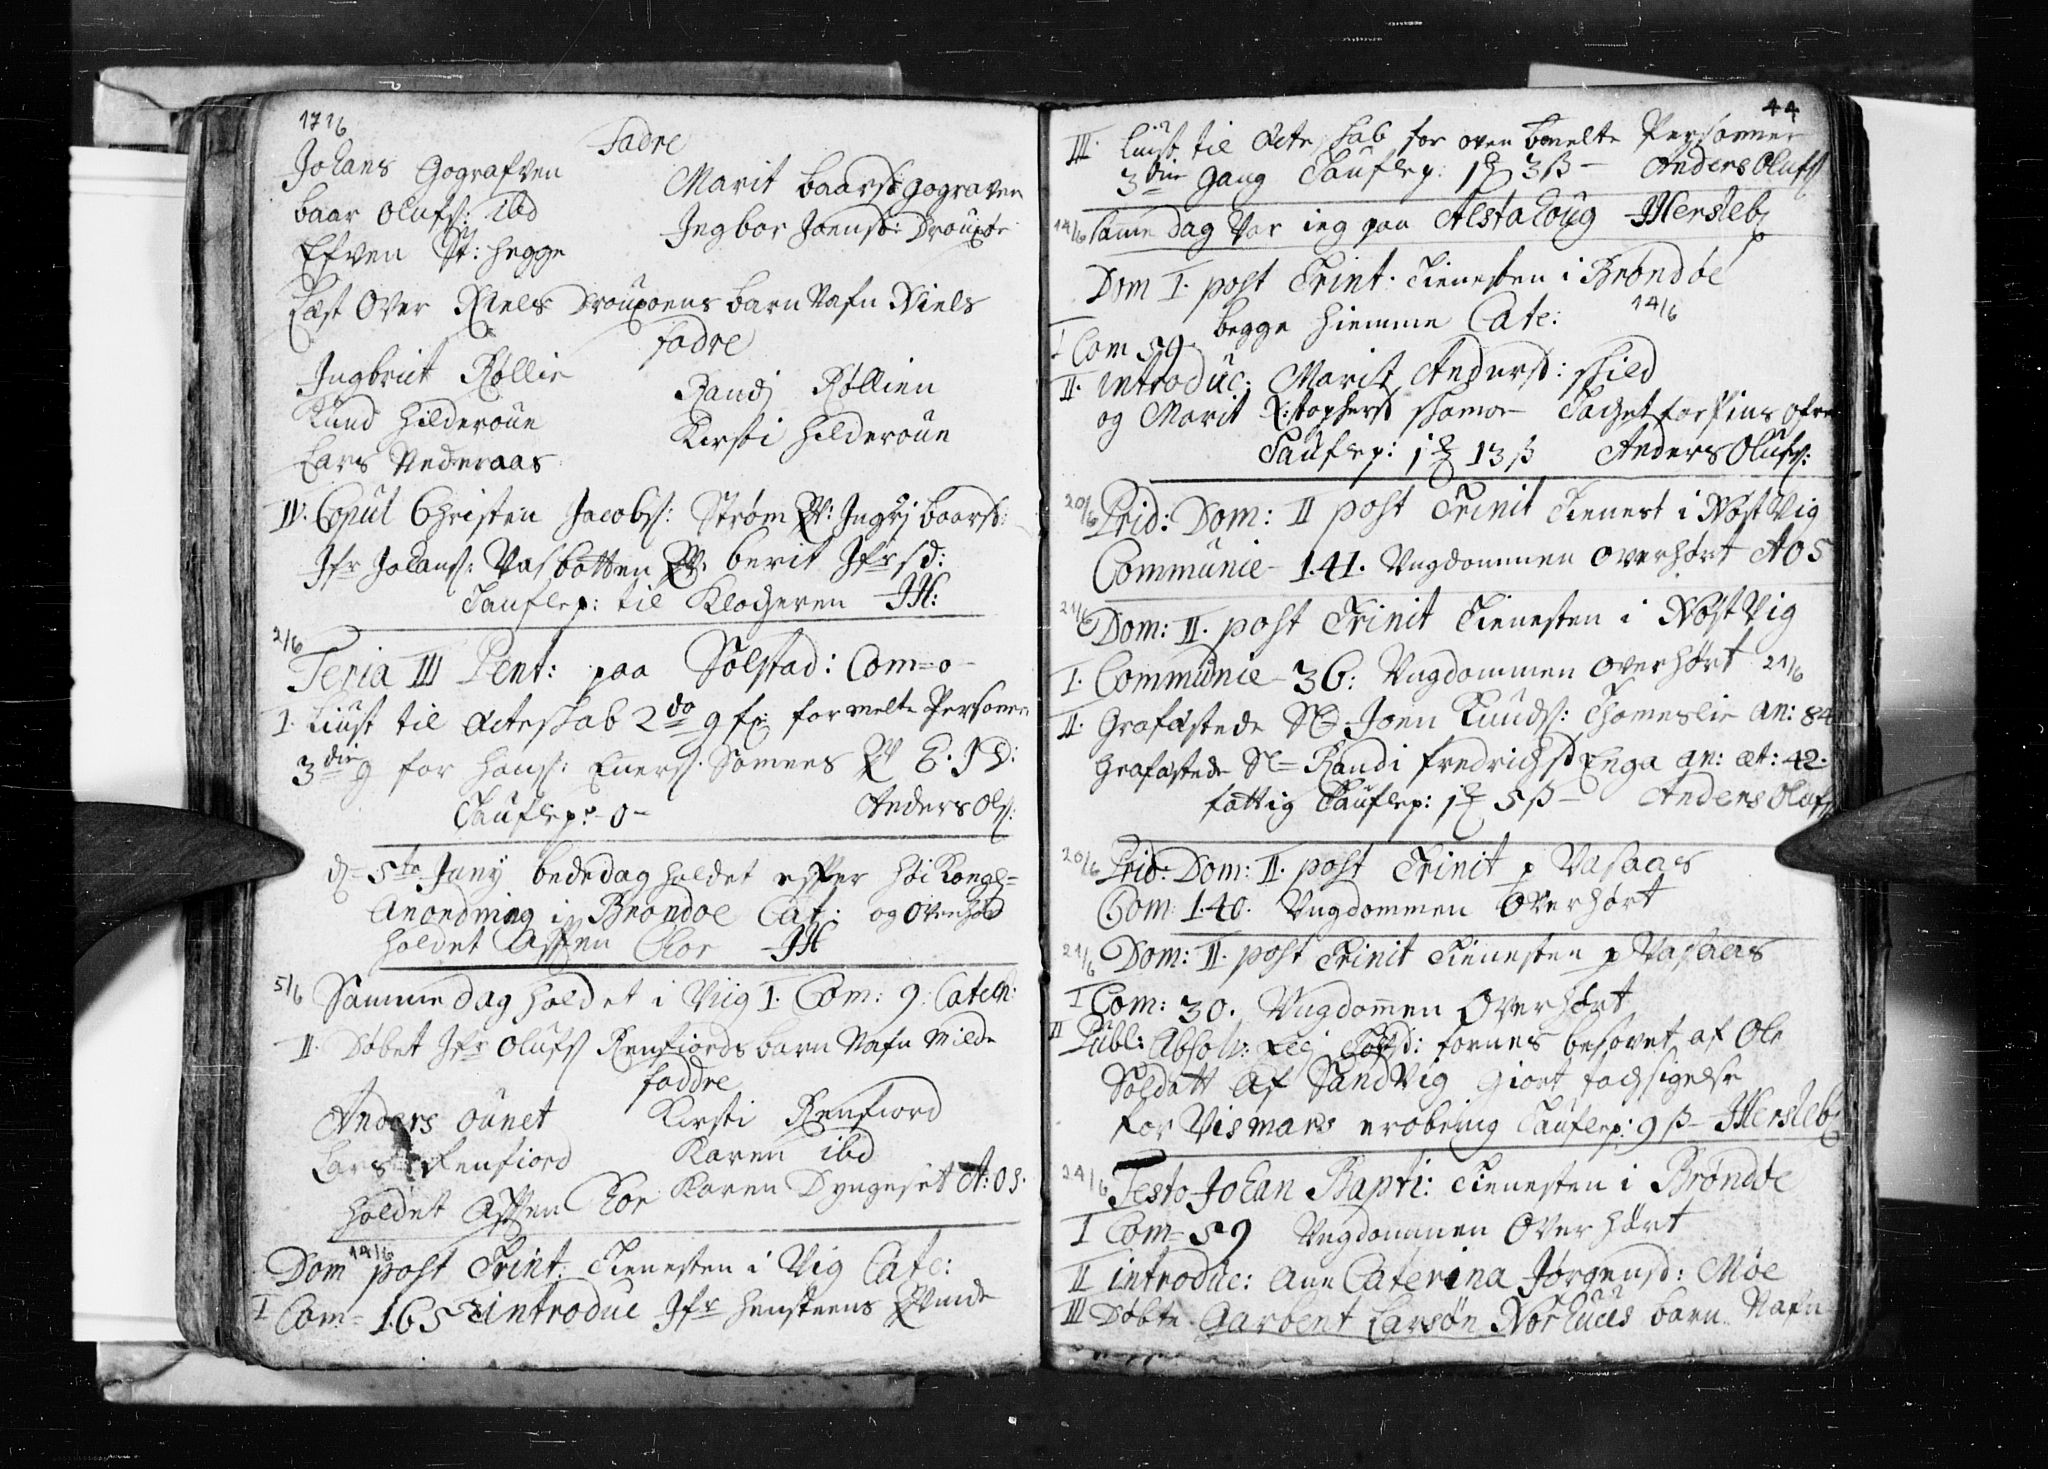 1716
Fadre
Johans Gografven Marit baarsd: gograven
baar Olufs: ibd Ingbor Joensd: Drouxøe
Efven St: hegge
Læst Over Niels Drouxoens barn Nafn Niels
fadre
Ingbrict Røllie Randj Røllien
Knud Hilderoüe Kirsti Hilderoüe
Lars Nederaas
IV. Copul Christen Jacobs: Strøm & Ingrj baarsd:
Ifr Johans: Vasbotten & berit Ifrsd:
Taufle p: til Klocheren JH:
2/6
Feria III Pent: paa Solstad: Com = 0 -
I. Liust til Ecteskab 2do g for melte Personer
3die g for Hans: Eners: Somnes & E. I D:
Taufle p: - 0 - Anders Ols:
d = 5te Juny bededag holdet efter Høi Kongl=
anordning i Brøndøe Cat: og ovenhør
holdet Aften Chor JH
5/6 Samme dag holdet i Viig I. Com: 9. Catech:
II. Døbet Ifr Olufs Renfiords barn Nafn Milde
faddre
Anders Oünet Kirsti Renfiord
Lars Renfiord Karen ibd
holdet Aften Chor Karen Dyngeset A: O S.
14/6
Dom post Trint: Tienesten i Vig Cate:
I Com = 165 introduc Ifr hensteens qvinde
44
III. Liust til Ecteskab for oven bemelte Personner
3die gang Taufle p: 1 3 ß - Anders Olufs
14/6 Same dag var ieg paa Alstahoug JHersleb
Dom I. post Trint: Tienesten i Brøndøe
begge hiemme Cate: 14/6
I Com 59
II. introduc: Marit Andersd: skild
og Marit X:stophersd skomo Tachet for Sins ofre
Taufle p: 1 13 ß Anders Olufs:
20/6 Prid: Dom: II post Trinit Tienest i Nøst Vig
Communic - 141. Ungdommen overhørt A O S
21/6 Dom: II. post Trinit Tienesten i Nøst Vig
I. Communic - 36: Ungdommen overhørt 21/6
II. Grafæstede Sl Joen Knuds: Thomeslie an: 84
Grafæstede Sl = Randi fredrichsd Enga an: æt: 42.
fattig Taufle p: 1 5 ß - Anders Olufs
20/6 Prid: Dom: II. post Trinit p Vasaas
Com 140. Ungdommen Overhørt
21/6 Dom: II. post Trinit Tienesten p Vasaas
I Com: 30. Ungdomen Overhørt
II Publ: Absolv: fornes besovet af Ole
Soldatt af Sandvig Giort tachsigelse
for Vismars erobring Taufle p: 9 ß - JHersleb
24/6 Festo Johan Bapti: Tienesten i Brøndøe
I Com = 59 Ungdommen Overhørt
II introduc: Ane Caterina Jørgensd: Møe
III Døbte Aarbent Larsøn Norhuus barn Nafn